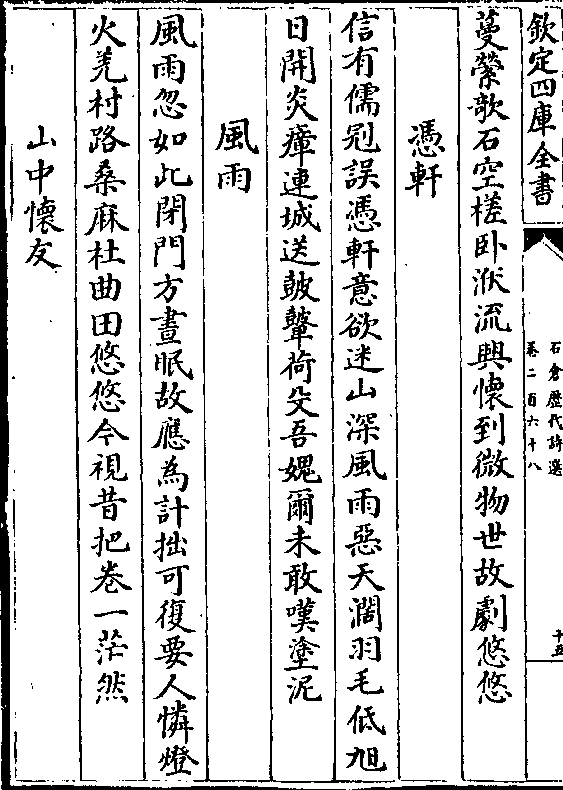 欽定四庫全書
石倉歴代詩選
卷二百六十八
十五
蔓縈欹石空槎卧洑流興懷到微物世故劇悠悠
憑軒
信有儒冠誤憑軒意欲迷山深風雨惡天濶羽毛低旭
日開炎瘴連城送皷鼙荷殳吾媿爾未敢嘆塗泥
風雨
風雨忽如此閉門方晝眠故應為計拙可復要人憐燈
火羌村路桑麻杜曲田悠悠今視昔把卷一茫然
山中懷友